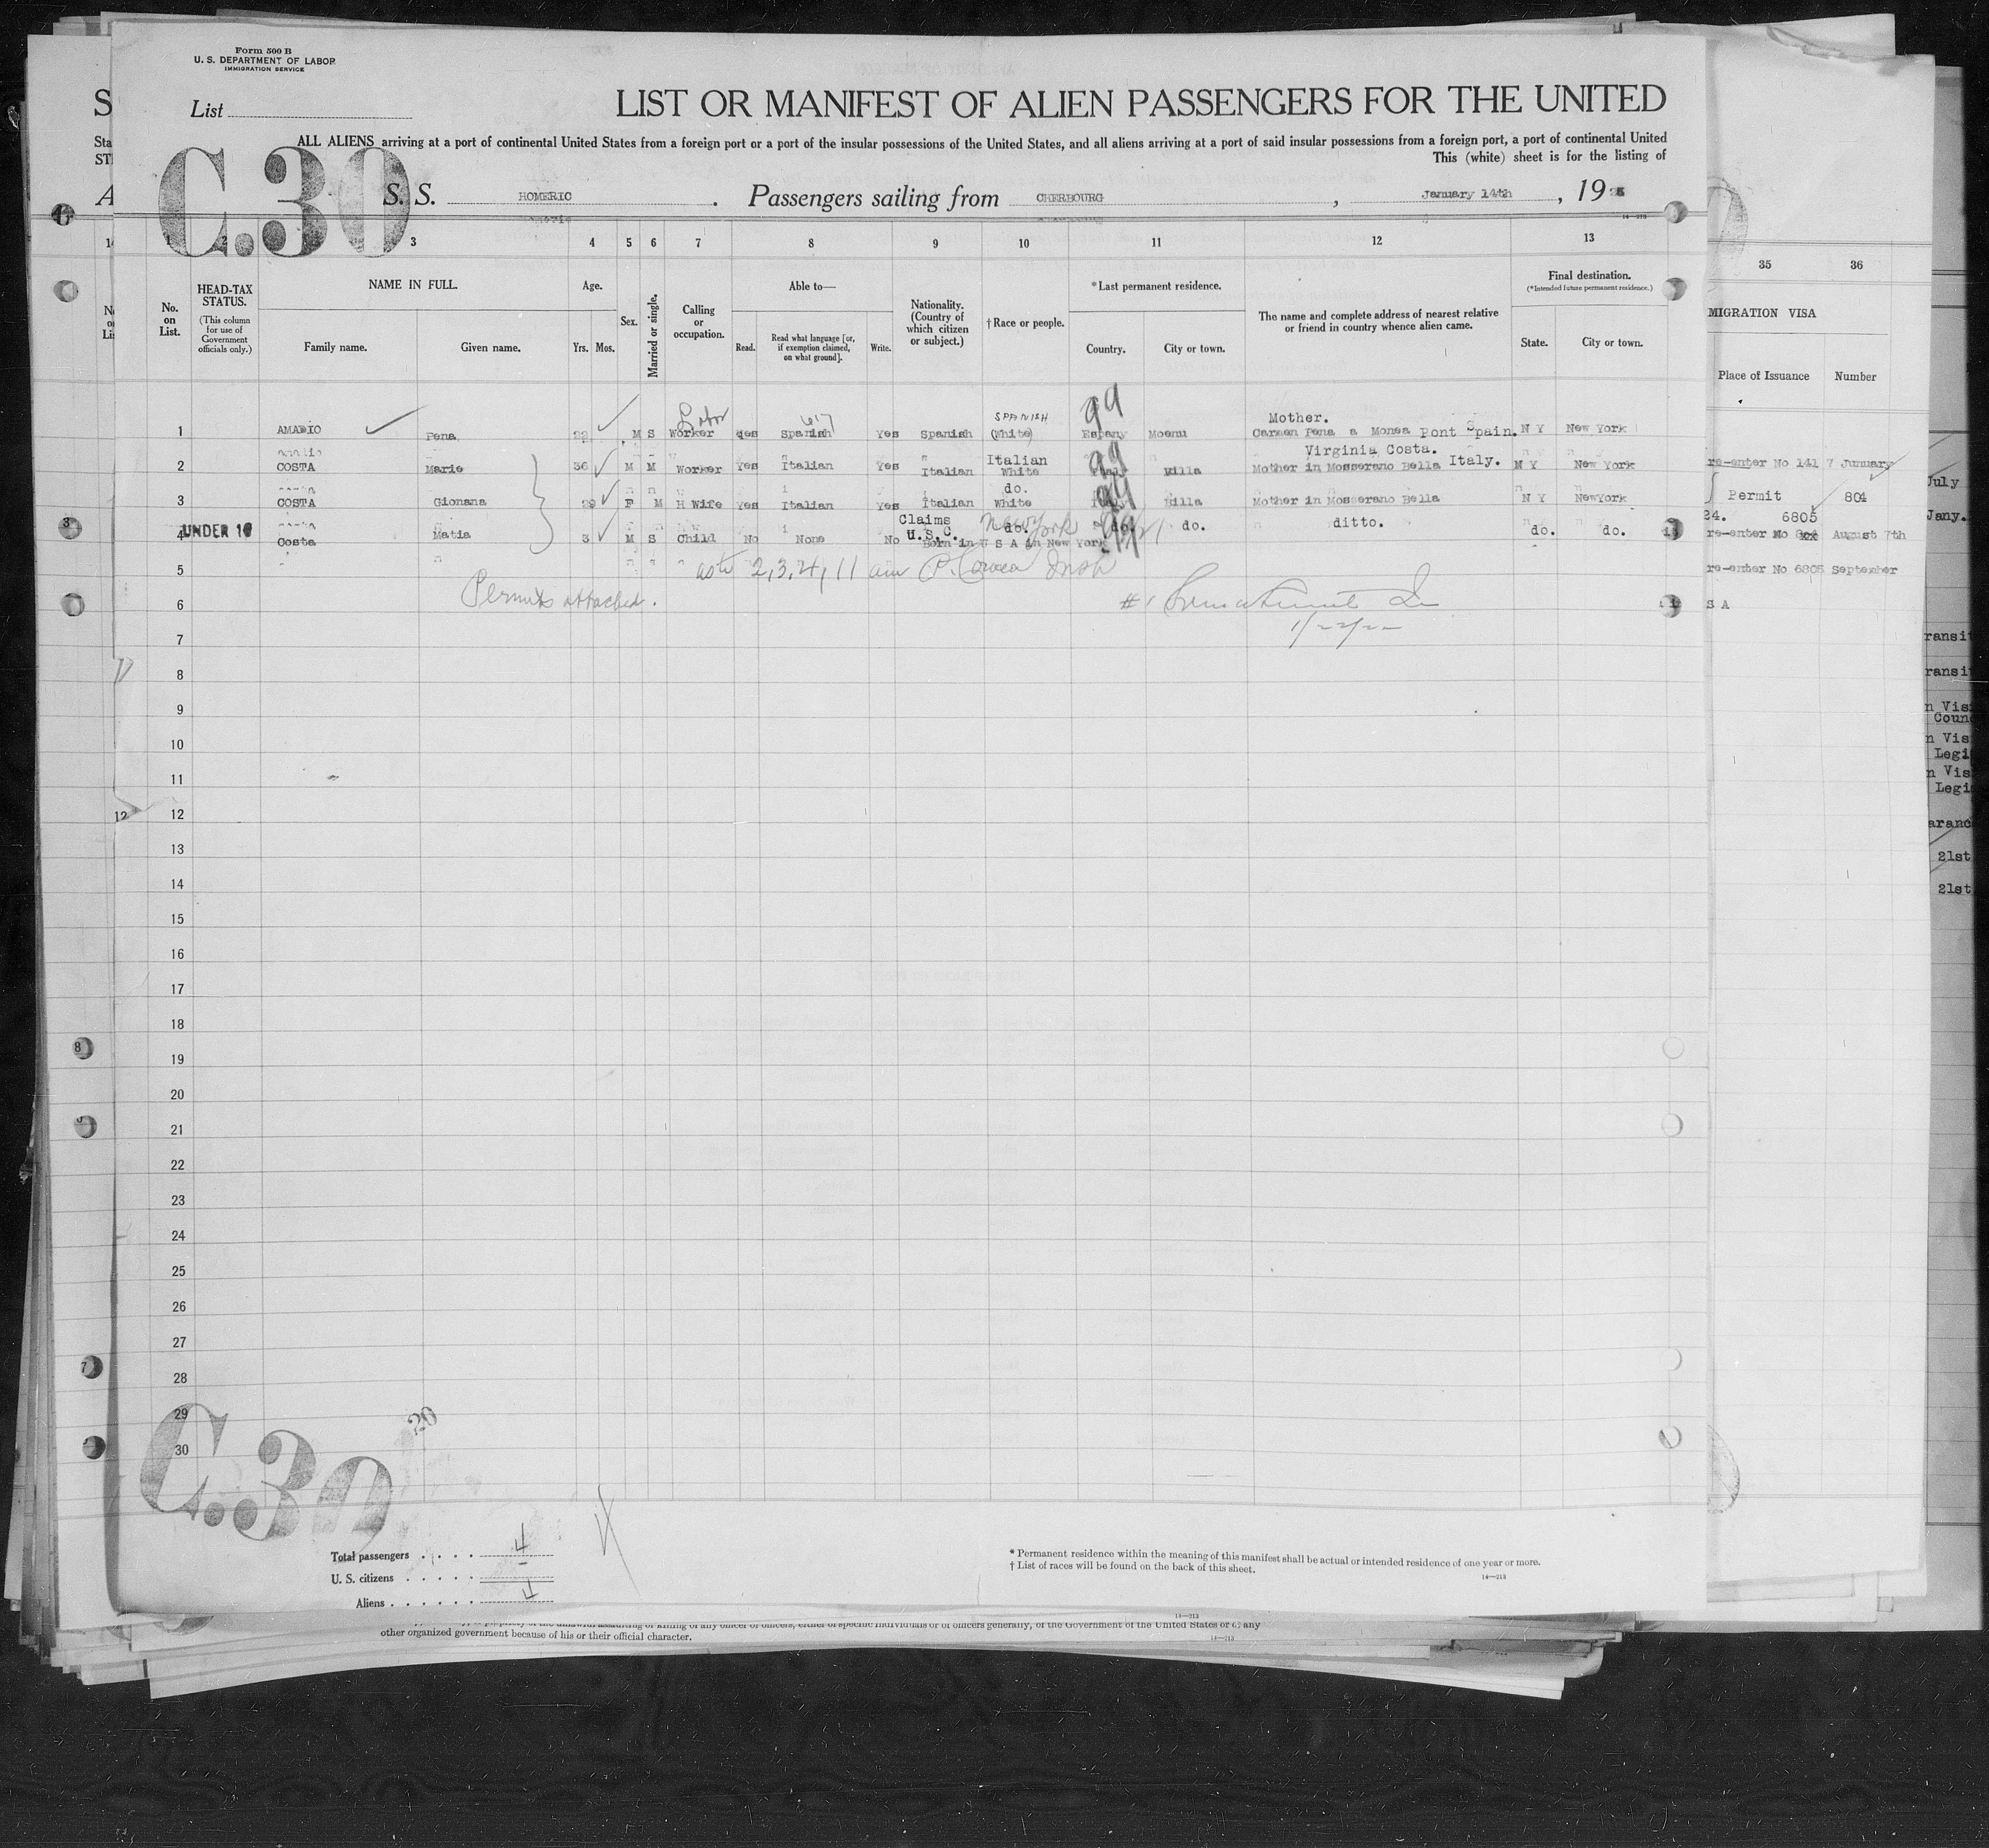 Form 500 B
U. S. DEPARTMENT OF LABOR
IMMIGRATION SERVICE
List
LIST OR MANIFEST OF ALIEN PASSENGERS FOR THE UNITED
ALL ALIENS arriving at a port of continental United States from a foreign port or a port of the insular possessions of the United States, and all aliens arriving at a port of said insular possessions from a foreign port, a port of continental United
This (white) sheet is for the listing of
C.30
S. S. HOMERIC . Passengers sailing from CHERBOURG , January 14th , 1925
3 4 5 6 7 8 9 10 11 12 13
No. on List.
HEAD-TAX STATUS.
(This column for use of Government officials only.)
NAME IN FULL.
Family name. Given name.
Age.
Yrs. Mos.
Sex.
Married or single.
Calling or occupation.
Able to—
Read. Read what language [or, if exemption claimed, on what ground]. Write.
Nationality. (Country of which citizen or subject.)
† Race or people.
* Last permanent residence.
Country. City or town.
The name and complete address of nearest relative or friend in country whence alien came.
Final destination.
(*Intended future permanent residence.)
State. City or town.
35 36
MIGRATION VISA
Place of Issuance Number
Labor SPANISH 99 Mother.
1 AMADIO Pena 22 M S Worker yes Spanish Yes Spanish (White) Espany Moenu Carmen Pena a Monea Pont Spain. N Y New York
Italian 99 Virginia Costa.
2 COSTA Marie 36 M M Worker Yes Italian Yes Italian White Italy Killa Mother in Mosserano Bella Italy. N Y New York
do. 99
3 COSTA Gionana 29 F M H Wife Yes Italian Yes Italian White Italy Billa Mother in Mosserano Bella N Y NewYork
Claims U.S.C. do. New York do. do. ditto. do. do.
4 UNDER 16 Costa Matia 3 M S Child No None No Born in U S A in New York
5 2,3,4, 11 am
6 Permits attached. #1
7
8
9
10
11
12
13
14
15
16
17
18
19
20
21
22
23
24
25
26
27
28
29
30
re-enter No 141 7 January
Permit 804
24. 6805
re-enter No August 7th
re-enter No 6805 September
S A
July
Jany.
21st
21st
C.30
20
Total passengers . . . . 4
U. S. citizens . . . . .
Aliens . . . . . . 4
* Permanent residence within the meaning of this manifest shall be actual or intended residence of one year or more.
† List of races will be found on the back of this sheet.
14—213
other organized government because of his or their official character.